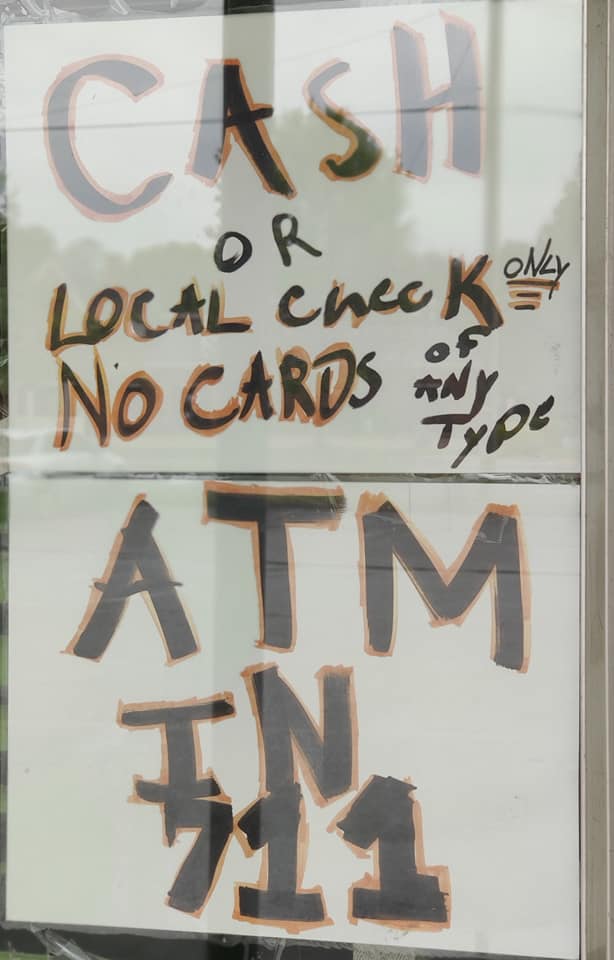 CASH
OR
LOCAL CHECK ONLY
NO CARDS OF ANY TYPE
ATM
IN
711